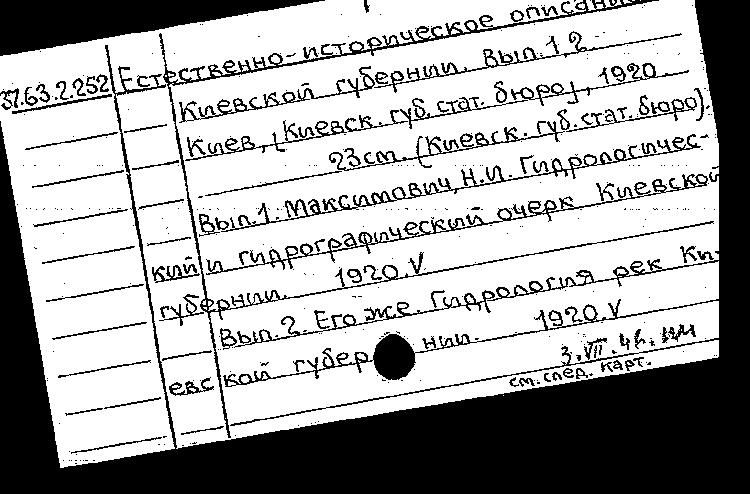 37.63.2.252 Естественно-историческое описание
Киевской губернии. Вып.1,2.
Киев, [Киевск. губ. стат. бюро], 1920.
23см. (Киевск. губ. стат. бюро).
Вып.1. Максимович, Н.И. Гидрологичес-
кий и гидрографический очерк Киевской
губернии. 1920. V
Вып.2. Его же. Гидрология рек Ки-
евской губернии. 1920. V
см. след. карт.